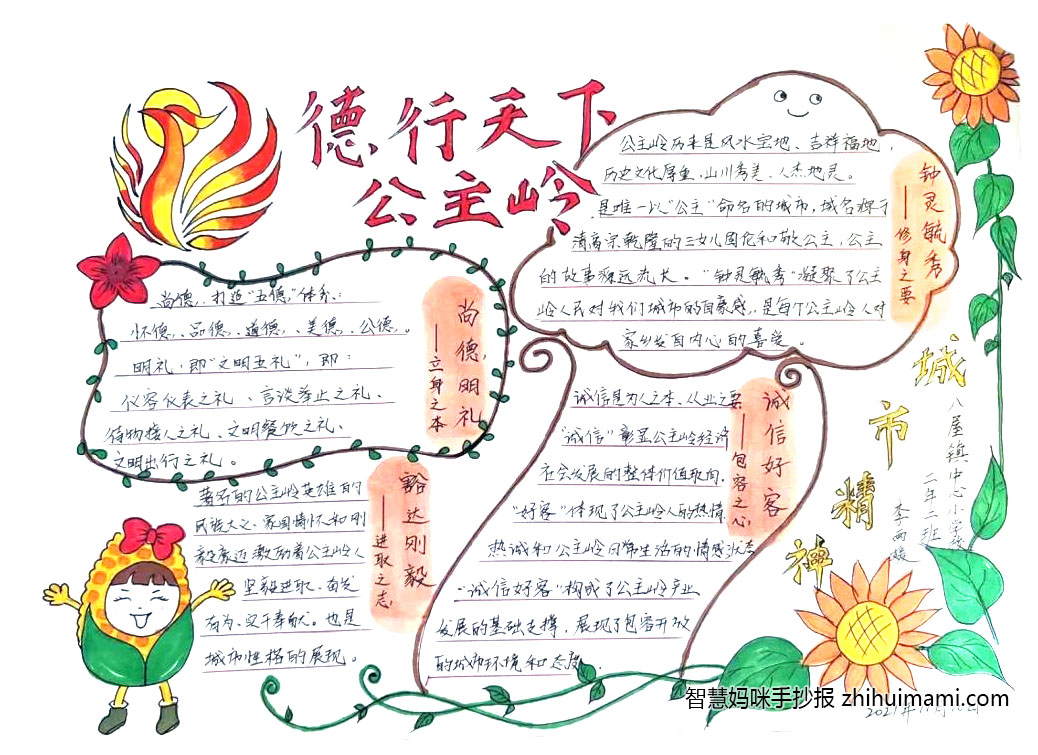 德行天下
公主岭
公主岭历来是风水宝地、吉祥福地，
历史文化厚重，山川秀美、人杰地灵。
是唯一以“公主”命名的城市，城名源于
清高宗乾隆的三女儿固伦和敬公主，公主
的故事源远流长。“钟灵毓秀”凝聚了公主
岭人民对我们城市的自豪感，是每个公主岭人对
家乡发自内心的喜爱。
钟灵毓秀
——修身之要
尚德，打造“五德”体系：
怀德、品德、道德、美德、公德。
明礼，即“文明五礼”，即：
仪容仪表之礼、言谈举止之礼、
待物接人之礼、文明餐饮之礼、
文明出行之礼。
尚德明礼
——立身之本
著名的公主岭英雄的
民族大义、家国情怀和刚
毅豪迈激励着公主岭人
坚毅进取、奋发
有为、实干奉献。也是
城市性格的展现。
豁达刚毅
——进取之志
诚信是为人之本、从业之要
“诚信”彰显公主岭经济
社会发展的整体价值取向。
“好客”体现了公主岭人的热情
热诚和公主岭日常生活的情感状态
“诚信好客”构成了公主岭产业
发展的基础支撑，展现了包容开放
的城市环境和态度。
诚信好客
——包容之心
城市精神
八屋镇中心小学校
二年二班
智慧妈咪手抄报 zhihuimami.com